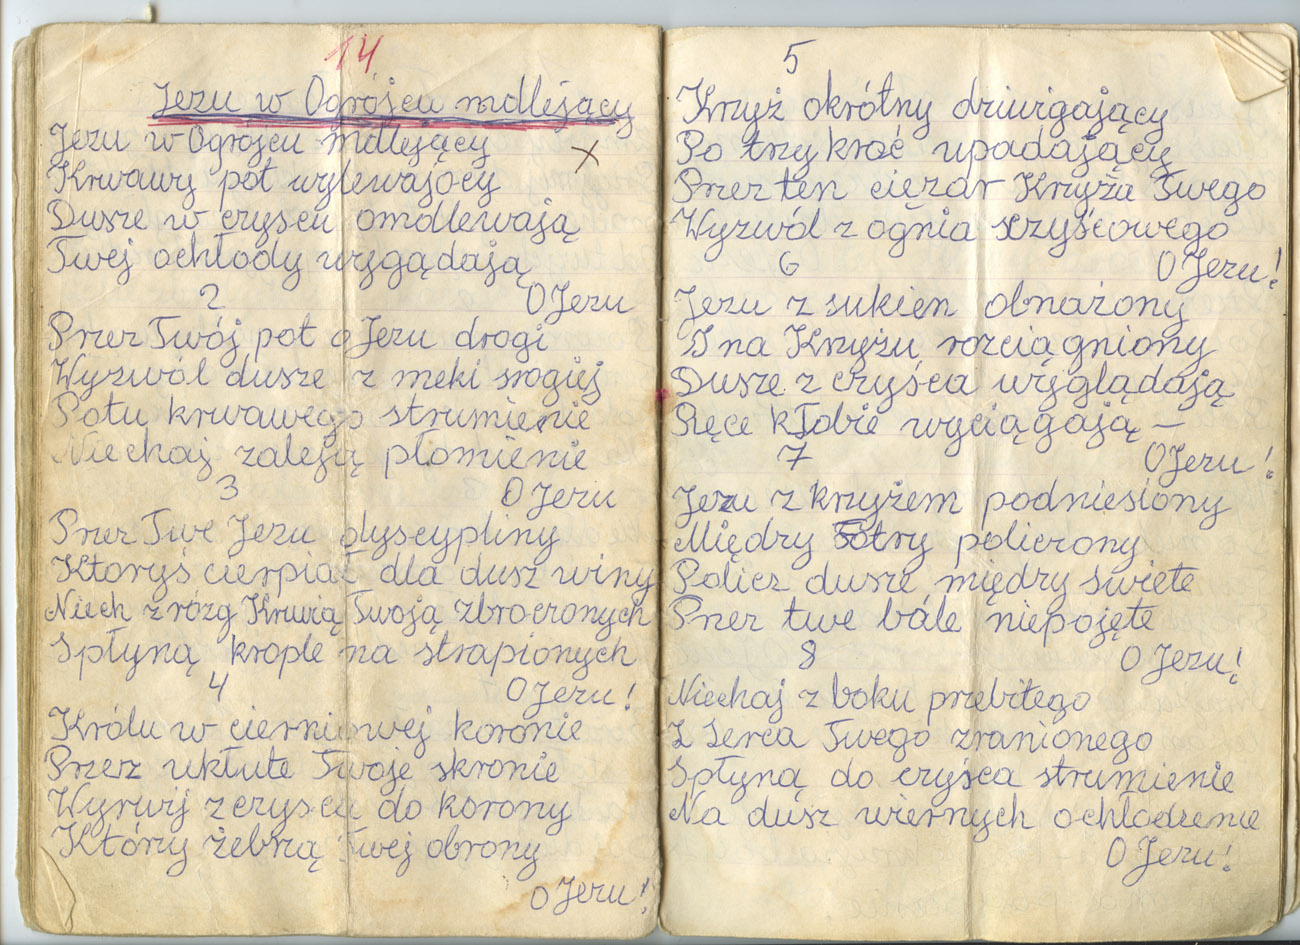 14
Jezu w Ogrójcu mdlejący
Jezu w Ogrojcu mdlejący
x
Krwawy pot wylewający
Dusze w czyscu omdlewają
Twej ochłody wygądają
2
O Jezu
Przez Twój pot o Jezu drogi
Wyzwól dusze z meki srogiej
Potu krwawego strumienie
Niechaj zaleją płomienie
3
O Jezu
Przez Twe Jezu dyscypliny
Ktoryś cierpiał dla dusz winy
Niech z rózg Krwią Twoją zbroczonych
Spłyną krople na strapionych
4
O Jezu!
Królu w cierniowej koronie
Przez ukłute Twoje skronie
Wyrwij z czyscu do korony
Którzy żebrzą Twej obrony
O Jezu!
5
Krzyż okrótny dziwigający
Po trzykroć upadający
Przez ten ciężar Krzyża Twego
Wyzwól z ognia czyśćowego
6
O Jezu!
Jezu z sukien obnażony
I na Krzyżu rozciągniony
Dusze z czyśca wyglądają
Ręce kTobie wyciągają —
7
O Jezu!
Jezu z krzyżem podniesiony
Między łotry policzony
Policz dusze między świete
Przez twe bóle niepojęte
8
O Jezu!
Niechaj z boku przebitego
Z Serca Twego zranionego
Spłyną do czyśca strumienie
Na dusz wiernych ochłodzenie
O Jezu!